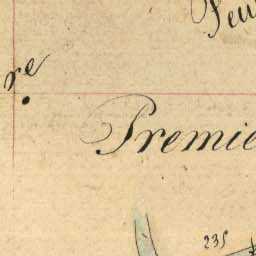 Feu
re
Premie
235